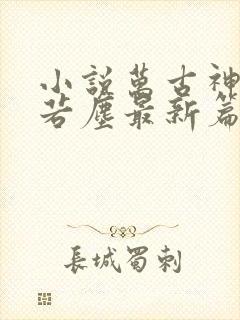 小說萬古神
若塵最新篇
長城蜀刺